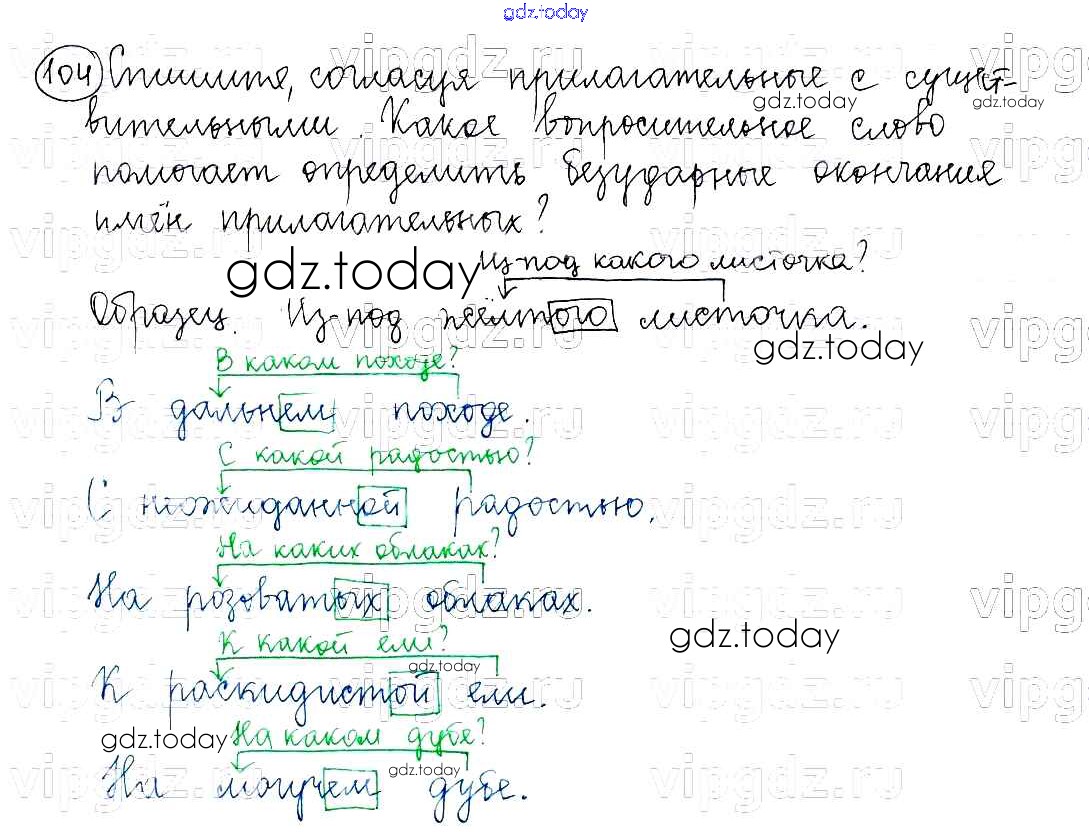 gdz.today
104 Спишите, согласуя прилагательные с сущест-
gdz.today
gdz.today
вительными. Какое вопросительное слово
помогает определить безударные окончания
имён прилагательных?
gdz.today
Из-под какого листочка?
Образец. Из-под жёлтого листочка.
gdz.today
В каком походе?
В дальнем походе.
С какой радостью?
С неожиданной радостью.
На каких облаках?
На розоватых облаках.
gdz.today
К какой ели?
gdz.today
К раскидистой ели.
gdz.today
На каком дубе?
gdz.today
На могучем дубе.
vipgdz.ru